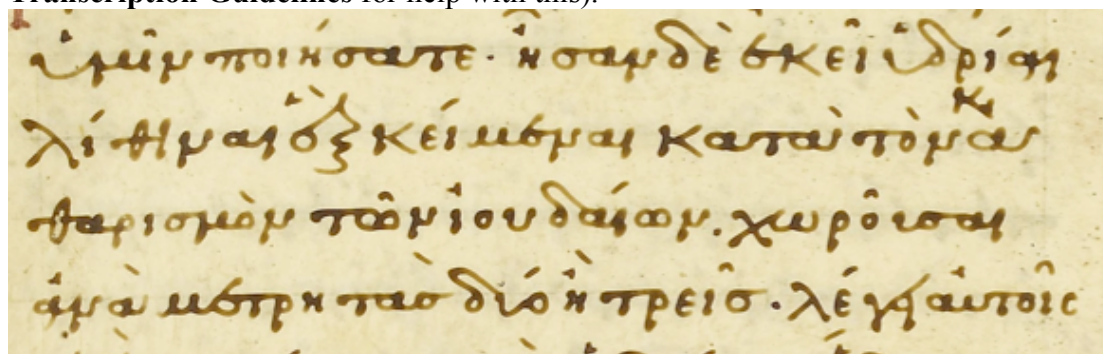 Transcription Guidelines for help with this).
ὑμῖν ποιήσατε· ἦσαν δὲ ἐκεῖ ὑδρίαι
λίθιναι ἓξ κείμεναι κατὰ τὸν κα
θαρισμὸν τῶν ἰουδαίων. χωροῦσαι
ἀνὰ μετρητὰς δύο ἢ τρεῖς· λέγει αὐτοῖς